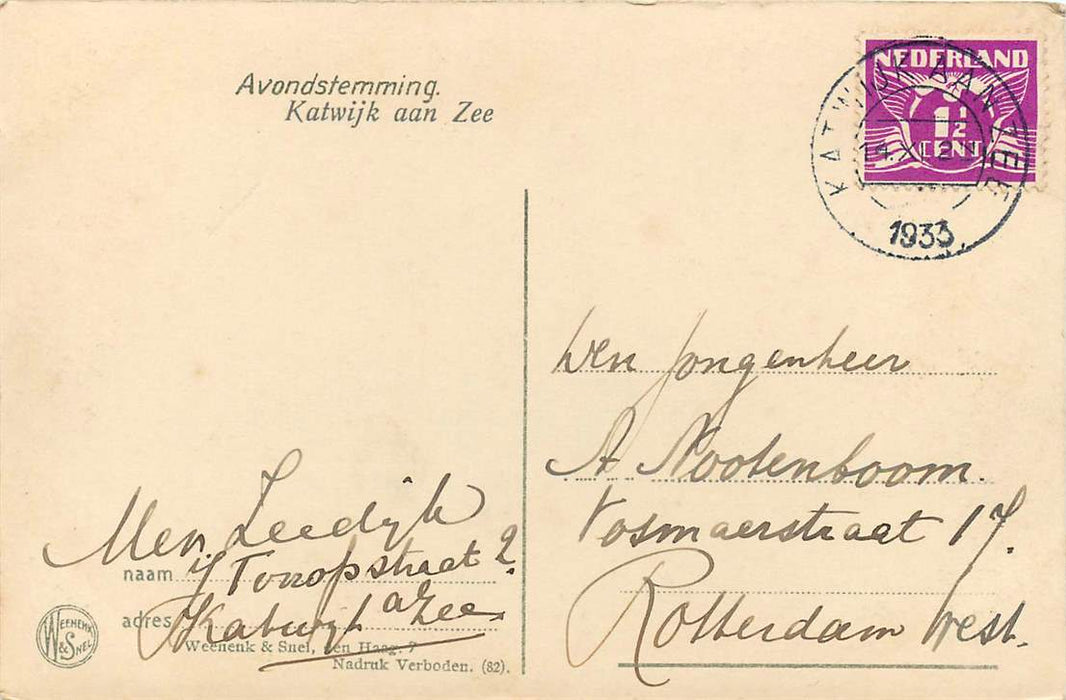 Avondstemming.
Katwijk aan Zee
NEDERLAND
1½
CENT
KATWIJK AAN ZEE
1933
Den Jongenheer
A Nootenboom.
Vosmaerstraat 17.
Rotterdam West.
naam
Zeedijk
straat 2.
adres
Katwijk a Zee
WEENENK & SNEL
Weenenk & Snel, Den Haag.
Nadruk Verboden. (82).